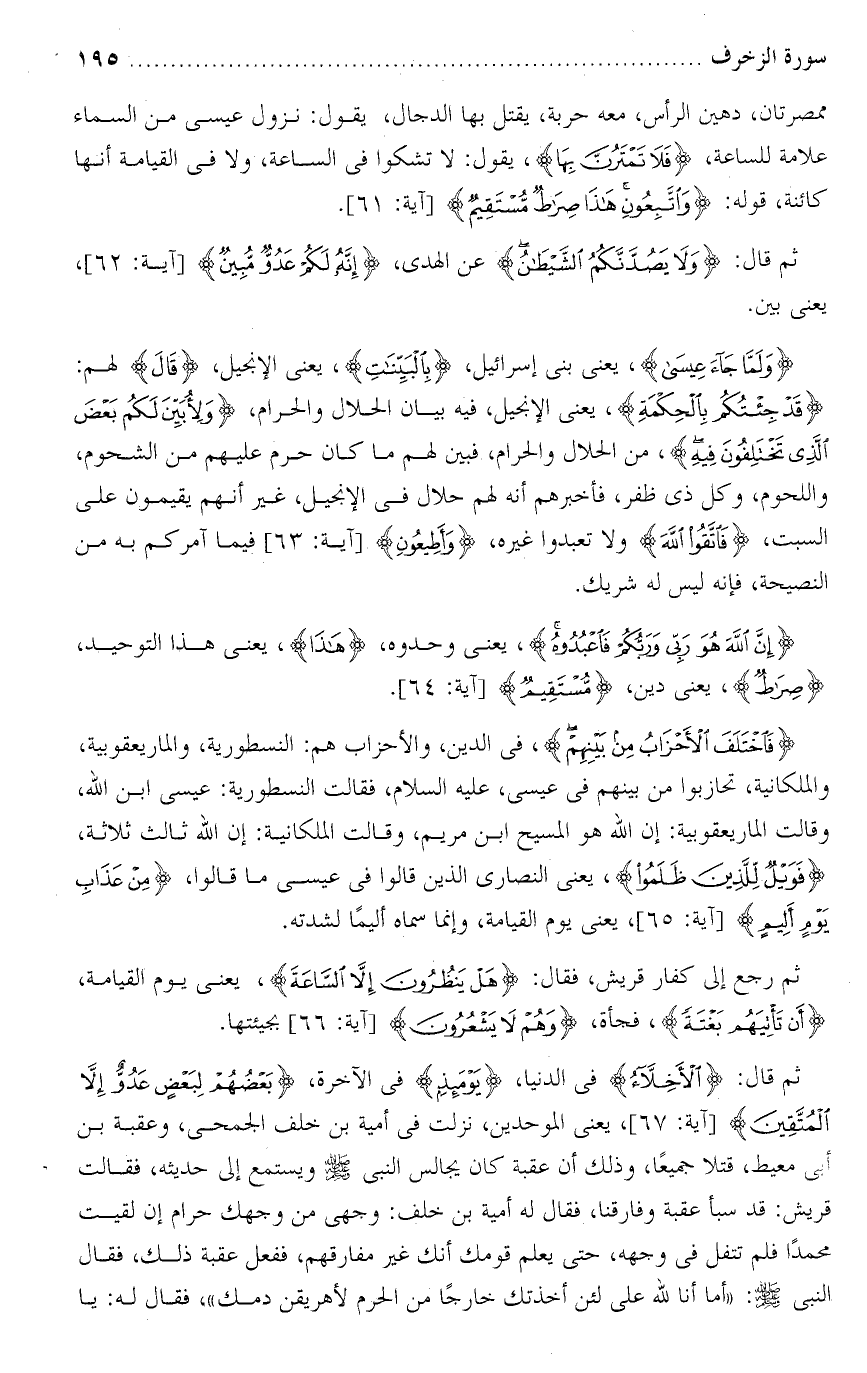 سورة الزخرف ........................................................................ ١٩٥
ممصرتان، دهين الرأس، معه حربة، يقتل بها الدجال، يقول: نزول عيسى من السماء
علامة للساعة، ﴿فَلَا تَمْتَرُنَّ بِهَا﴾، يقول: لا تشكوا فى الساعة، ولا فى القيامة أنها
كائنة، قوله: ﴿وَاتَّبِعُونِ هَٰذَا صِرَاطٌ مُّسْتَقِيمٌ﴾ [آية: ٦١].
ثم قال: ﴿وَلَا يَصُدَّنَّكُمُ الشَّيْطَانُ﴾ عن الهدى، ﴿إِنَّهُ لَكُمْ عَدُوٌّ مُّبِينٌ﴾ [آية: ٦٢]،
يعنى بين.
﴿وَلَمَّا جَاءَ عِيسَىٰ﴾، يعنى بنى إسرائيل، ﴿بِالْبَيِّنَاتِ﴾، يعنى الإنجيل، ﴿قَالَ﴾ لهم:
﴿قَدْ جِئْتُكُم بِالْحِكْمَةِ﴾، يعنى الإنجيل، فيه بيان الحلال والحرام، ﴿وَلِأُبَيِّنَ لَكُم بَعْضَ
الَّذِى تَخْتَلِفُونَ فِيهِ﴾، من الحلال والحرام، فبين لهم ما كان حرم عليهم من الشحوم،
واللحوم، وكل ذى ظفر، فأخبرهم أنه لهم حلال فى الإنجيل، غير أنهم يقيمون على
السبت، ﴿فَاتَّقُوا اللَّهَ﴾ ولا تعبدوا غيره، ﴿وَأَطِيعُونِ﴾ [آية: ٦٣] فيما آمركم به من
النصيحة، فإنه ليس له شريك.
﴿إِنَّ اللَّهَ هُوَ رَبِّى وَرَبُّكُمْ فَاعْبُدُوهُ﴾، يعنى وحدوه، ﴿هَٰذَا﴾، يعنى هذا التوحيد،
﴿صِرَاطٌ﴾، يعنى دين، ﴿مُّسْتَقِيمٌ﴾ [آية: ٦٤].
﴿فَاخْتَلَفَ الْأَحْزَابُ مِنْ بَيْنِهِمْ﴾، فى الدين، والأحزاب هم: النسطورية، والماريعقوبية،
والملكانية، تحازبوا من بينهم فى عيسى، عليه السلام، فقالت النسطورية: عيسى ابن الله،
وقالت الماريعقوبية: إن الله هو المسيح ابن مريم، وقالت الملكانية: إن الله ثالث ثلاثة،
﴿فَوَيْلٌ لِّلَّذِينَ ظَلَمُوا﴾، يعنى النصارى الذين قالوا فى عيسى ما قالوا، ﴿مِنْ عَذَابِ
يَوْمٍ أَلِيمٍ﴾ [آية: ٦٥]، يعنى يوم القيامة، وإنما سماه أليمًا لشدته.
ثم رجع إلى كفار قريش، فقال: ﴿هَلْ يَنظُرُونَ إِلَّا السَّاعَةَ﴾، يعنى يوم القيامة،
﴿أَن تَأْتِيَهُم بَغْتَةً﴾، فجأة، ﴿وَهُمْ لَا يَشْعُرُونَ﴾ [آية: ٦٦] بجيئتها.
ثم قال: ﴿الْأَخِلَّاءُ﴾ فى الدنيا، ﴿يَوْمَئِذٍ﴾ فى الآخرة، ﴿بَعْضُهُمْ لِبَعْضٍ عَدُوٌّ إِلَّا
الْمُتَّقِينَ﴾ [آية: ٦٧]، يعنى الموحدين، نزلت فى أمية بن خلف الجمحى، وعقبة بن
أبى معيط، قتلا جميعًا، وذلك أن عقبة كان يجالس النبى ﷺ ويستمع إلى حديثه، فقالت
قريش: قد سبأ عقبة وفارقنا، فقال له أمية بن خلف: وجهى من وجهك حرام إن لقيت
محمدًا فلم تتفل فى وجهه، حتى يعلم قومك أنك غير مفارقهم، ففعل عقبة ذلك، فقال
النبى ﷺ: «أما أنا لله على لئن أخذتك خارجًا من الحرم لأهريقن دمك»، فقال له: يا